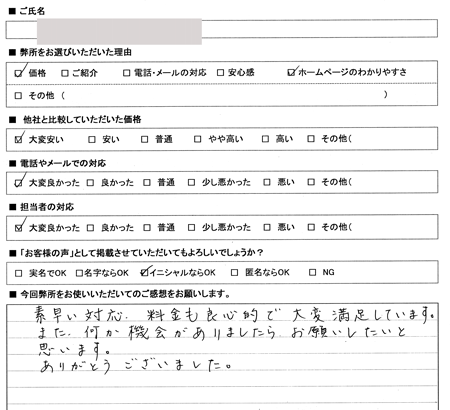 ■ ご氏名
■ 弊所をお選びいただいた理由
☑ 価格 □ ご紹介 □ 電話・メールの対応 □ 安心感 ☑ ホームページのわかりやすさ
□ その他 ( )
■ 他社と比較していただいた価格
☑ 大変安い □ 安い □ 普通 □ やや高い □ 高い □ その他(
■ 電話やメールでの対応
☑ 大変良かった □ 良かった □ 普通 □ 少し悪かった □ 悪い □ その他(
■ 担当者の対応
☑ 大変良かった □ 良かった □ 普通 □ 少し悪かった □ 悪い □ その他(
■ 「お客様の声」として掲載させていただいてもよろしいでしょうか?
□ 実名でOK □ 名字ならOK ☑ イニシャルならOK □ 匿名ならOK □ NG
■ 今回弊所をお使いいただいてのご感想をお願いします。
素早い対応、料金も良心的で大変満足しています。
また、何か機会がありましたらお願いしたいと
思います。
ありがとうございました。